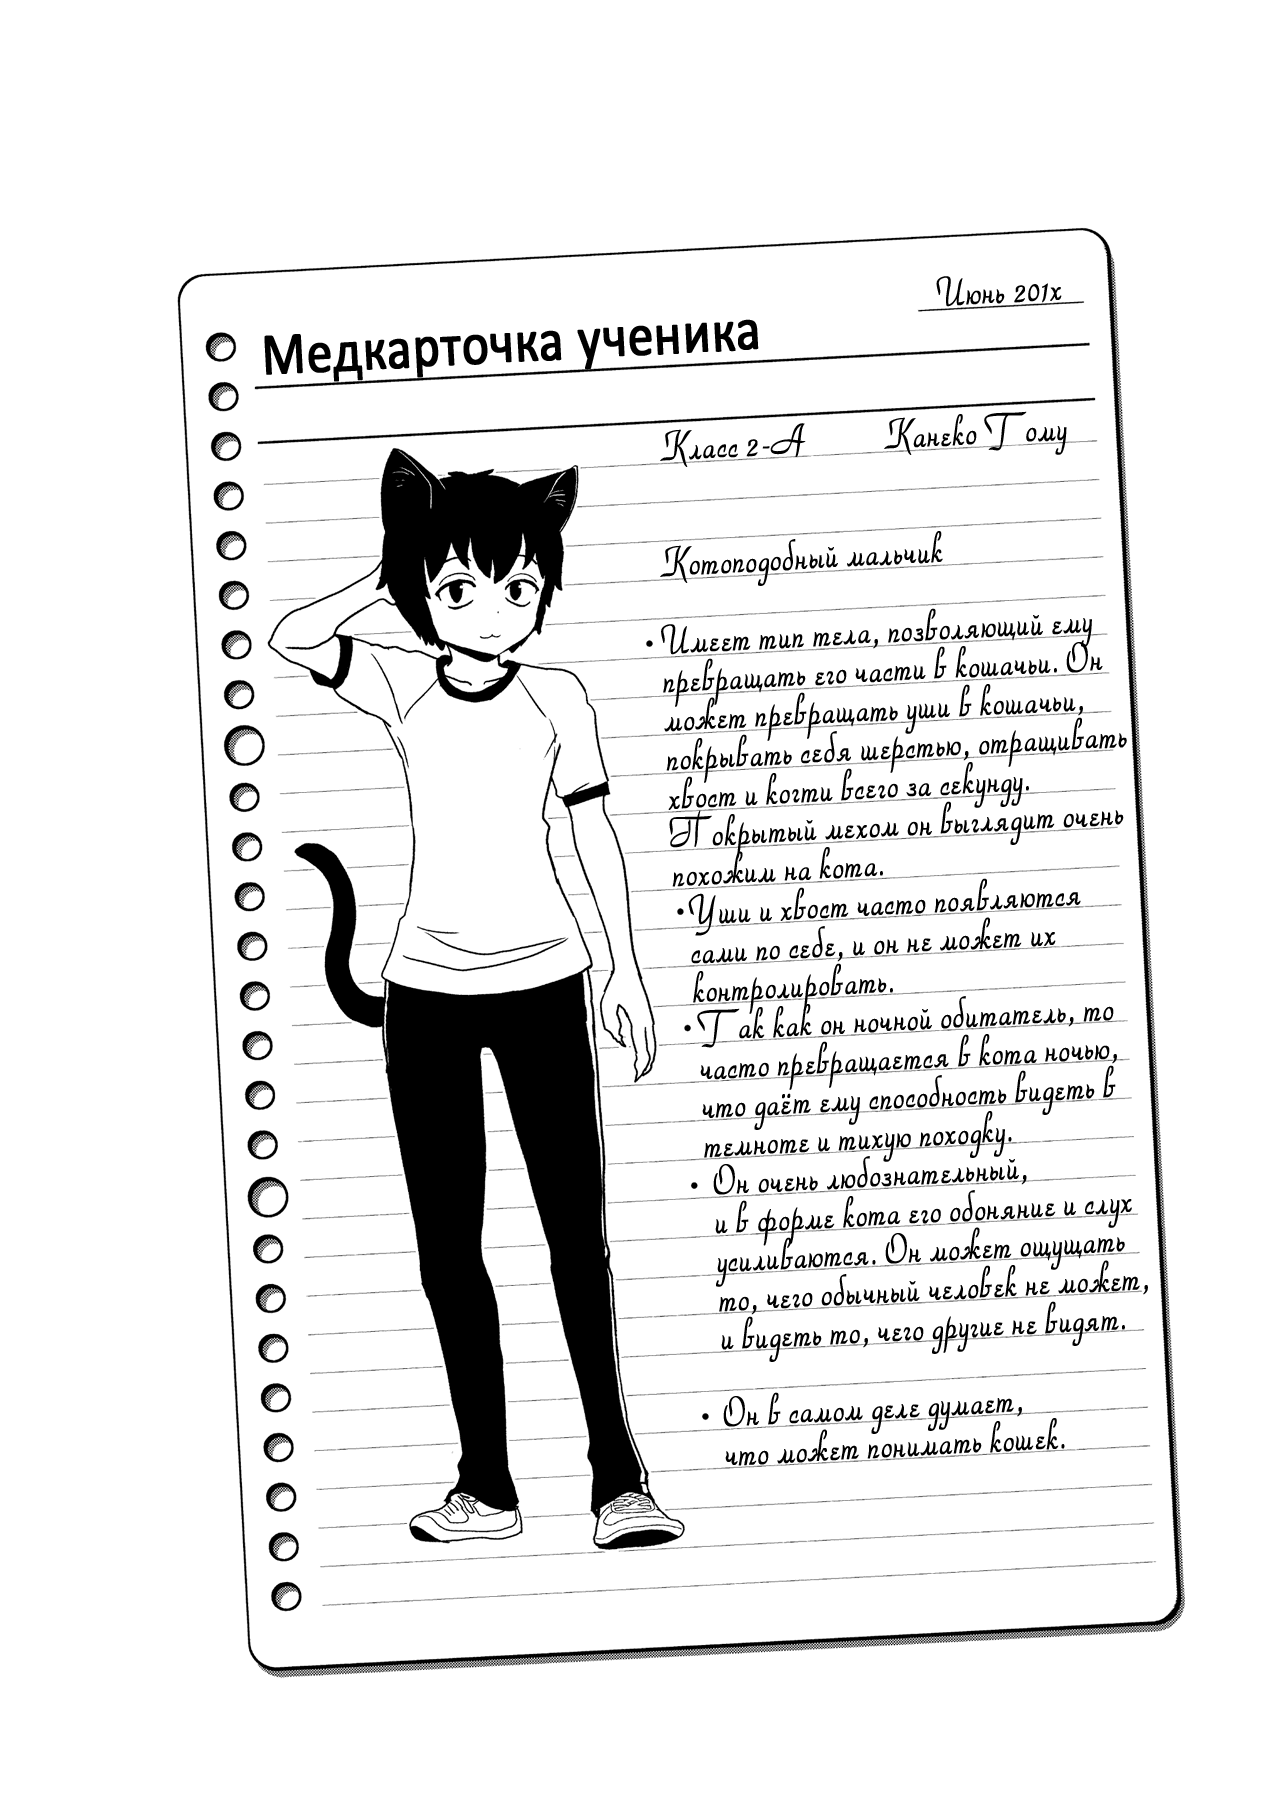 Июнь 201x
Медкарточка ученика
Класс 2-А Канеко Тому
Котоподобный мальчик
• Имеет тип тела, позволяющий ему
превращать его части в кошачьи. Он
может превращать уши в кошачьи,
покрывать себя шерстью, отращивать
хвост и когти всего за секунду.
Покрытый мехом он выглядит очень
похожим на кота.
• Уши и хвост часто появляются
сами по себе, и он не может их
контролировать.
• Так как он ночной обитатель, то
часто превращается в кота ночью,
что даёт ему способность видеть в
темноте и тихую походку.
• Он очень любознательный,
и в форме кота его обоняние и слух
усиливаются. Он может ощущать
то, чего обычный человек не может,
и видеть то, чего другие не видят.
• Он в самом деле думает,
что может понимать кошек.